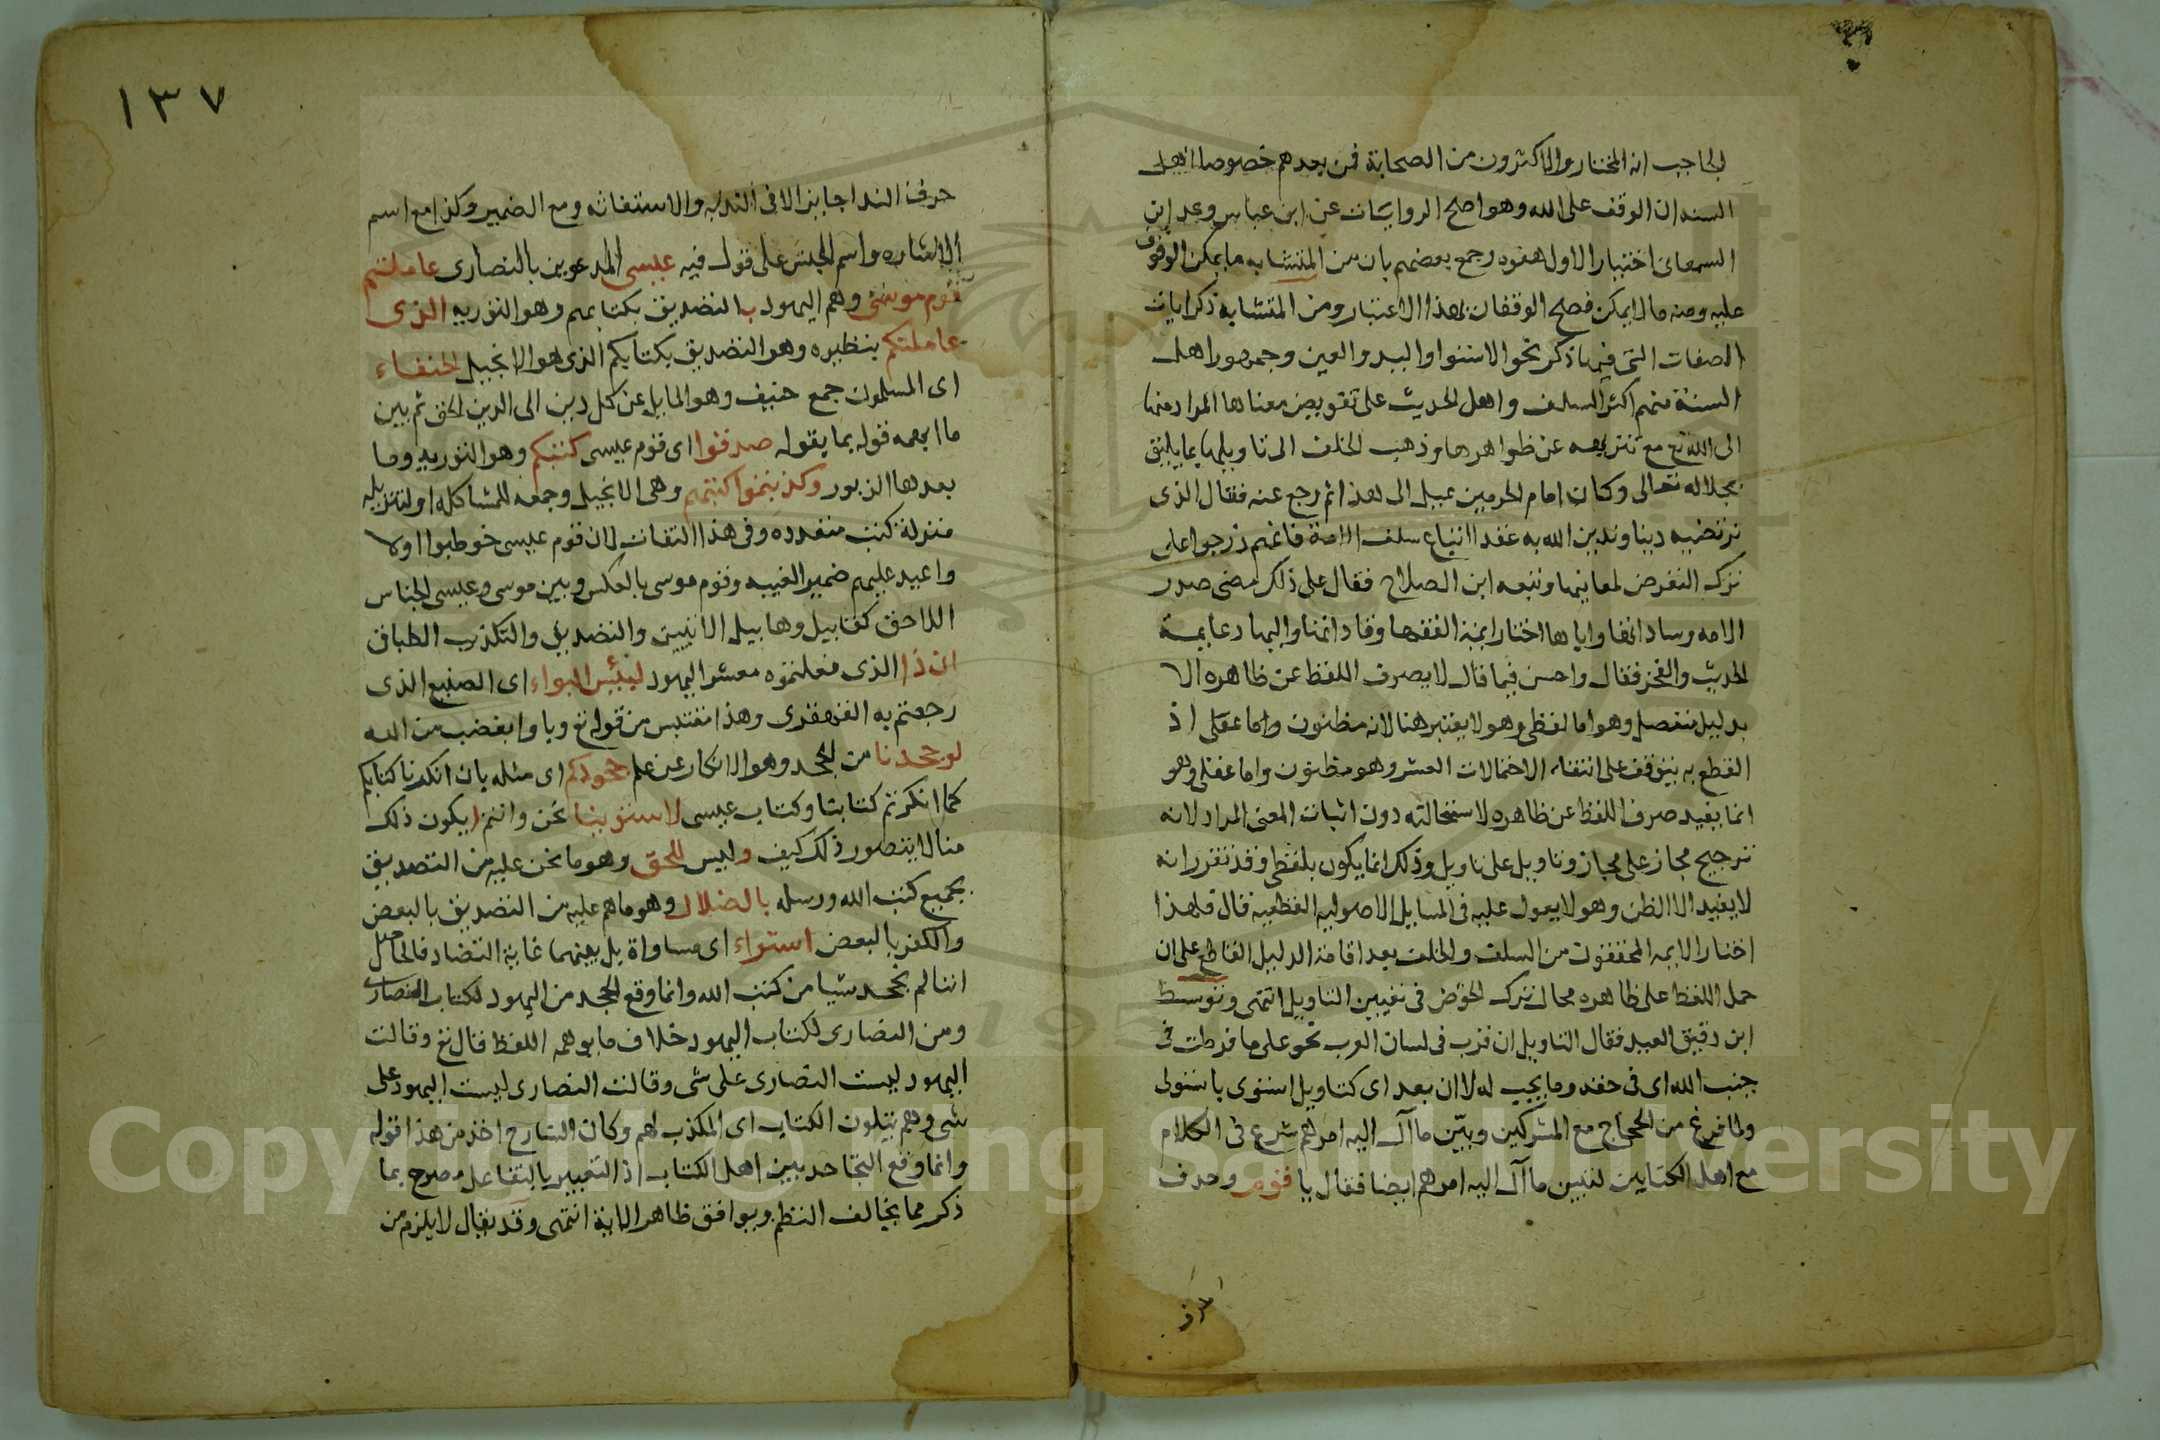 الحاجب انه المختار والاكثرون من الصحابة فمن بعدهم خصوصا اهل
السنه ان الوقف على الله وهو اصح الروايات عن ابن عباس وعد ابن
السمعاني اختيار الاول هفوه وجمع بعضهم بان من المتشابه ما يمكن الوقوف
عليه ومنه ما لا يمكن فصح الوقفان بهذا الاعتبار ومن المتشابه ذكر ايات
الصفات التي فيها ذكر نحو الاستوا واليد والعين وجمهور اهل
السنة منهم اكثر السلف واهل الحديث على تفويض معناها المراد منها
الى الله تع مع تنزيهه عن ظواهرها وذهب الخلف الى تاويلها بما يليق
بجلاله تعالى وكان امام الحرمين يميل الى هذا ثم رجع عنه فقال الذي
نرتضيه دينا وندين الله به عقدا اتباع سلف الامة فانهم درجوا على
ترك التعرض لمعانيها وتبعه ابن الصلاح فقال على ذلك مضى صدر
الامه وساداتها واياها اختار ايمة الفقها وقاداتها واليها دعا ايمة
الحديث والفخر فقال واحسن فيما قال لا يصرف اللفظ عن ظاهره الا
بدليل منفصل وهو اما لفظي وهو لا يعتبر هنا لانه مظنون واما عقلي اذ
القطع به يتوقف على انتفاء الاحتمالات العشر وهو مظنون واما عقلي وهو
انما يفيد صرف اللفظ عن ظاهره لاستحالته دون اثبات المعنى المراد لانه
ترجيح مجاز على مجاز وتاويل على تاويل وذلك انما يكون بلفظي وقد تقرر انه
لا يفيد الا الظن وهو لا يعول عليه في المسايل الاصوليه القطعيه قال فلهذا
اختار الايمه المحققون من السلف والخلف بعد اقامة الدليل القاطع على ان
حمل اللفظ على ظاهره محال ترك الخوض في تعيين التاويل انتهى وتوسط
ابن دقيق العيد فقال التاويل ان قرب في لسان العرب نحو على ما فرطت في
جنب الله اى في حقه وما يجب له لا ان بعد اى كتاويل استوى باستولى
ولما فرغ من الحجاج مع المشركين وبين ما آل اليه امرهم شرع في الكلام
مع اهل الكتابين لتبيين ما آل اليه امرهم ايضا فقال يا قوم وحذف
١٣٧
حرف الندا جايز الا في الندبه والاستغاثه ومع الضمير وكذا مع اسم
الاشاره واسم الجنس على قول فيه عيسى المدعوين بالنصارى عاملتم
قوم موسى وهم اليهود بالتصديق بكتابهم وهو التوريه الذى
عاملتكم بنظيره وهو التصديق بكتابكم الذى هو الانجيل الحنفاء
اى المسلمون جمع حنيف وهو المايل عن كل دين الى الدين الحق ثم بين
ما ابهمه قوله بما يقوله صدقوا اى قوم عيسى كتبكم وهو التوريه وما
بعدها الزبور وكذبتموا كتبهم وهى الانجيل وجمعه للمشاكله او لتنزيله
منزلة كتب متعدده وفي هذا التفات لان قوم عيسى خوطبوا اولا
واعيد عليهم ضمير الغيبه وقوم موسى بالعكس وبين موسى وعيسى الجناس
اللاحق كقابيل وهابيل الاتيين والتصديق والتكذيب الطباق
ان ذا الذى فعلتموه معشر اليهود لبئس البواء اى الصنيع الذى
رجعتم به القهقرى وهذا مقتبس من قوله تع وباوا بغضب من الله
لو جحدنا من الجحد وهو الانكار عن علم جحودكم اى مثله بان انكرنا كتابكم
كما انكرتم كتابنا وكتاب عيسى لاستوينا نحن وانتم ايكون ذلك
منا لا يتصور ذلك كيف وليس للحق وهو ما نحن عليه من التصديق
بجميع كتب الله ورسله بالضلال وهو ما هم عليه من التصديق بالبعض
والكفر بالبعض استواء اى مساواة بل بينهما غاية التضاد فالحاصل
اننا لم نجحد شيا من كتب الله وانما وقع الجحد من اليهود لكتاب النصارى
ومن النصارى لكتاب اليهود خلاف ما يوهمه اللفظ قال تع وقالت
اليهود ليست النصارى على شى وقالت النصارى ليست اليهود على
شى وهم يتلون الكتاب اى المكذب لهم وكان الشارح اخذ من هذا قوله
وانما وقع التجاحد بين اهل الكتاب اذ التعبير بالتفاعل مصرح بما
ذكر مما يخالف النظم ويوافق ظاهر الاية انتهى وقد يقال لا يلزم من
Copyright © King Saud University